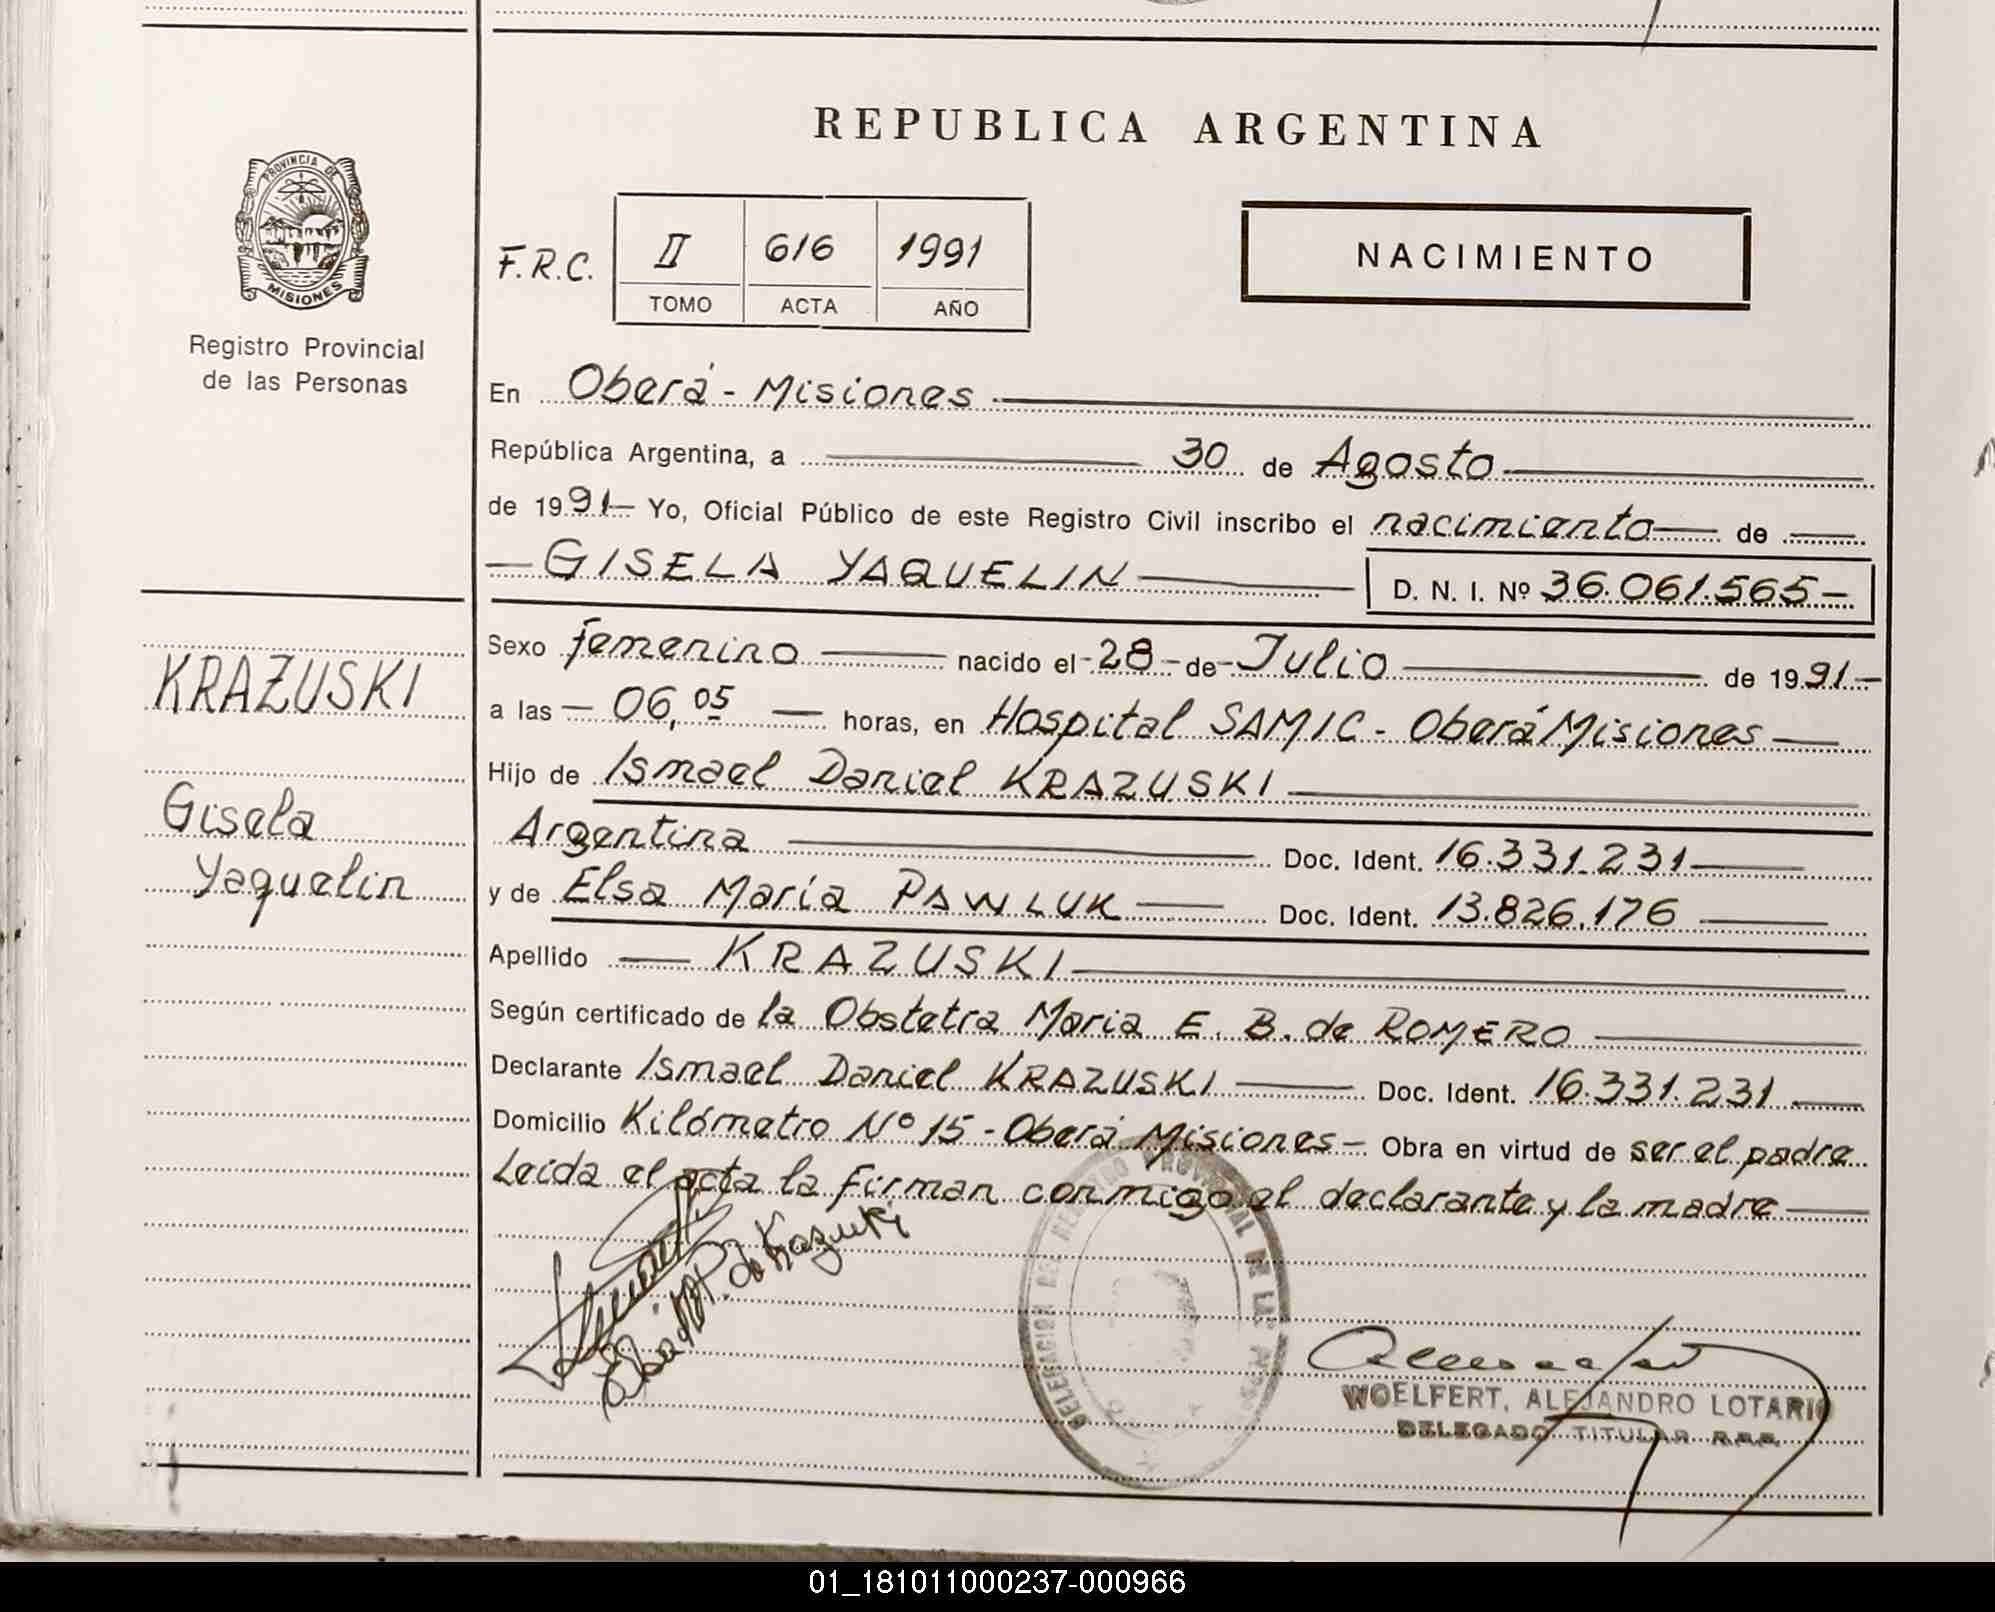 REPUBLICA ARGENTINA
PROVINCIA DE
MISIONES
Registro Provincial
de las Personas
F.R.C. II 616 1991
TOMO ACTA AÑO
NACIMIENTO
En Oberá - Misiones
República Argentina, a 30 de Agosto
de 1991 Yo, Oficial Público de este Registro Civil inscribo el nacimiento de
GISELA YAQUELIN D. N. I. Nº 36.061.565-
Sexo femenino nacido el 28 de Julio de 1991-
a las 06,05 horas, en Hospital SAMIC - Oberá Misiones
Hijo de Ismael Daniel KRAZUSKI
Argentina Doc. Ident. 16.331.231
y de Elsa María PAWLUK Doc. Ident. 13.826.176
Apellido KRAZUSKI
Según certificado de la Obstetra Maria E. B. de ROMERO
Declarante Ismael Daniel KRAZUSKI Doc. Ident. 16.331.231
Domicilio Kilómetro Nº 15 - Oberá Misiones - Obra en virtud de ser el padre
Leida el acta la firman conmigo el declarante y la madre
KRAZUSKI
Gisela
Yaquelin
WOELFERT, ALEJANDRO LOTARIO
DELEGADO TITULAR R.P.P.
01_181011000237-000966